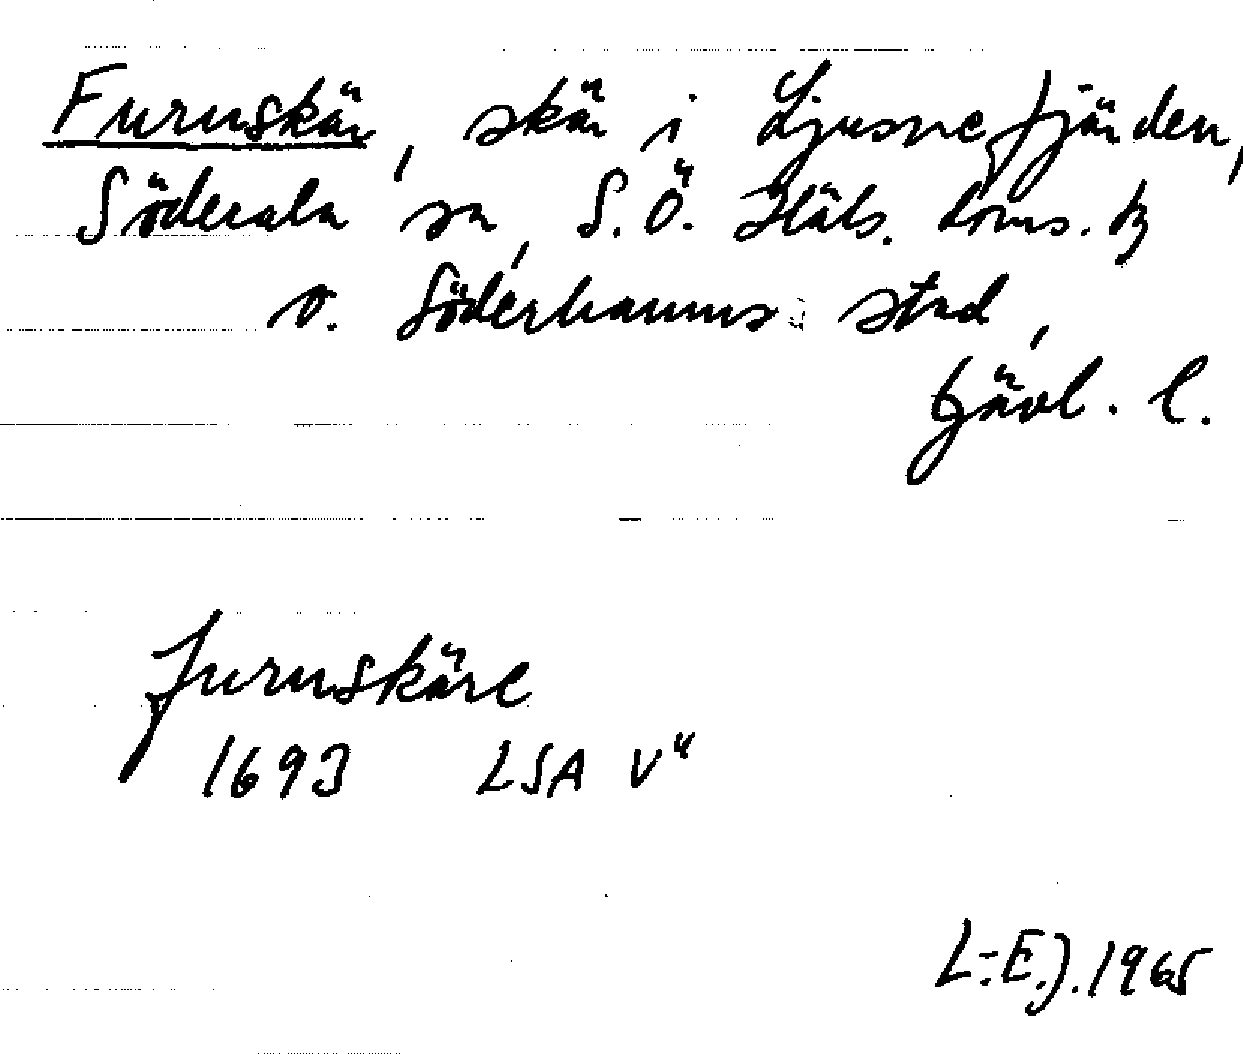 Furuskär, skär i Ljusnefjärden,
Söderala sn, S.Ö. Häls. doms. tg
o. Söderhamns stad,
Gävl. l.
Furuskäre
1693 LSA V"
L-E.J. 1965